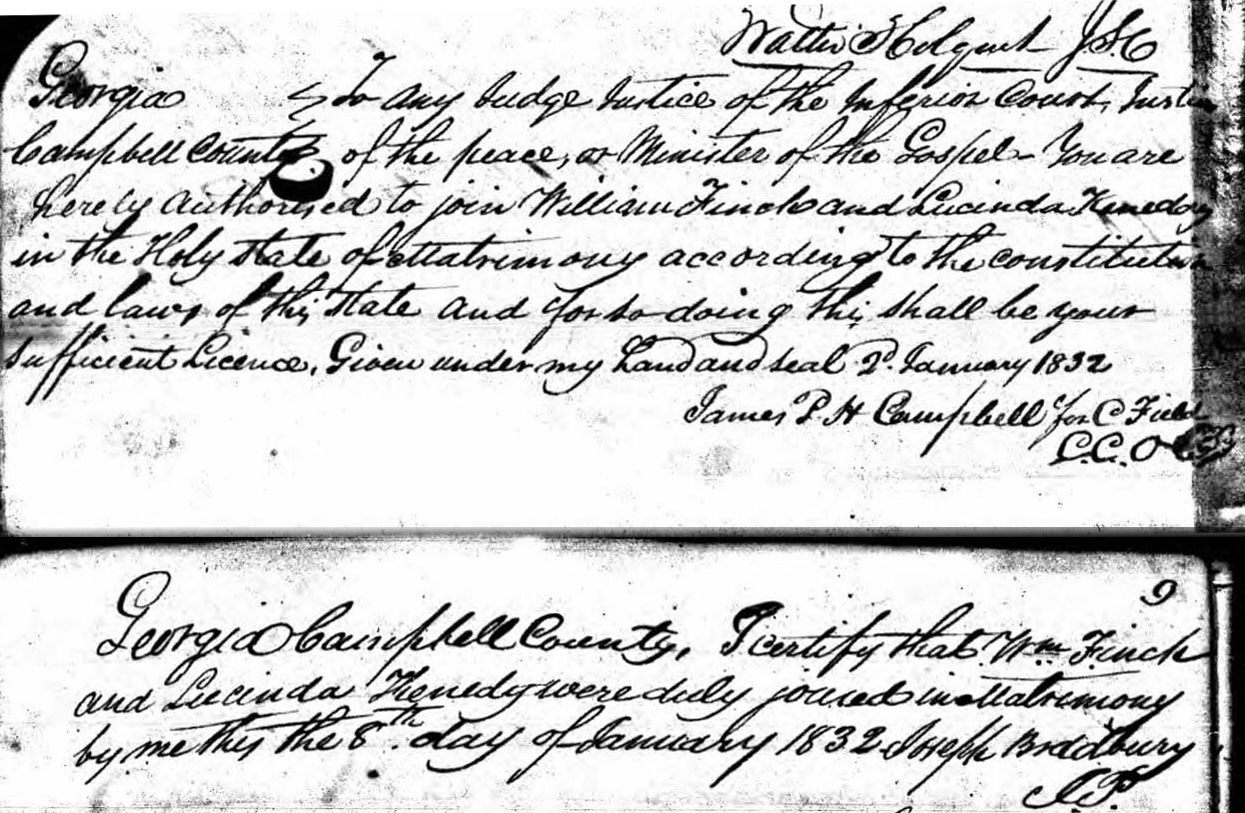 Walter Colquit J.S.C
Georgia } To any Judge Justice of the Inferior Court, Justice
Campbell County of the peace, or Minister of the Gospel - You are
hereby Authorised to join William Finch and Lucinda Kenedy
in the Holy State of Matrimony according to the constitution
and laws of this State and for so doing this shall be your
sufficient Licence, Given under my hand and seal 2d. January 1832
James P. H Campbell for C Field
C.C.O
9
Georgia Campbell County, I certify that Wm Finch
and Lucinda Kenedy were duly joined in Matrimony
by me this the 8th. day of January 1832 Joseph Bradbury
J.P.